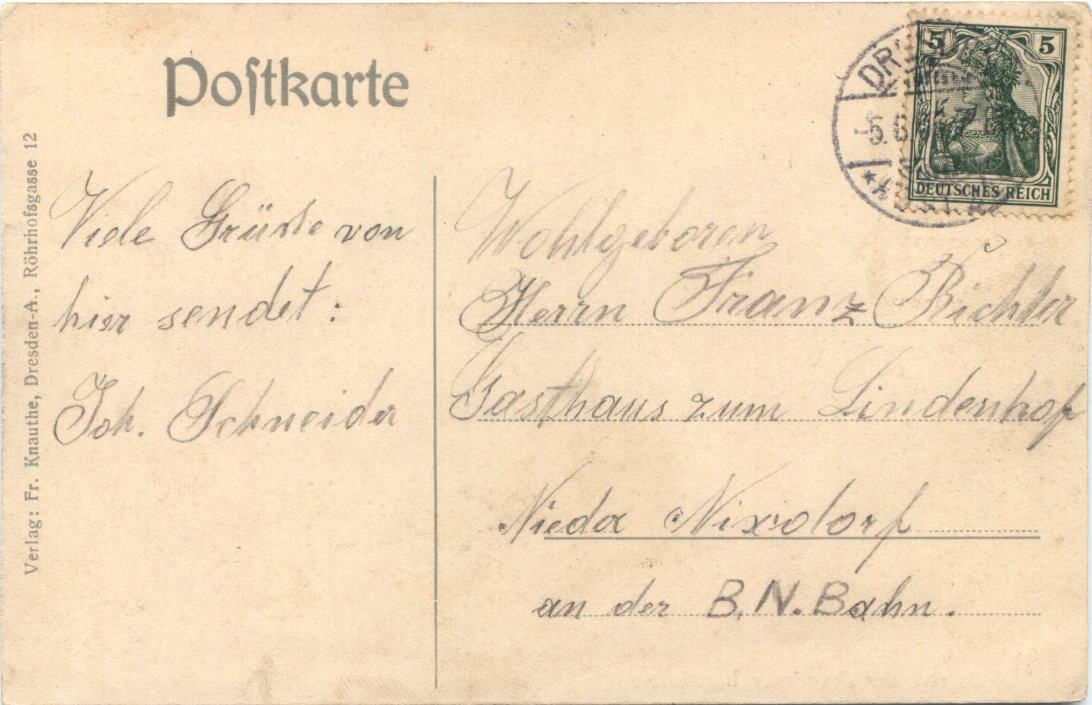 Poſtkarte
5 5
DEUTSCHES REICH
Verlag: Fr. Knauthe, Dresden-A., Röhrhofsgasse 12
Viele Grüsse von
hier sendet:
Joh. Schneider
Wohlgeboren
Herrn Franz Richter
Gasthaus zum Lindenhof
Nieder Nixdorf
an der B.N.Bahn.